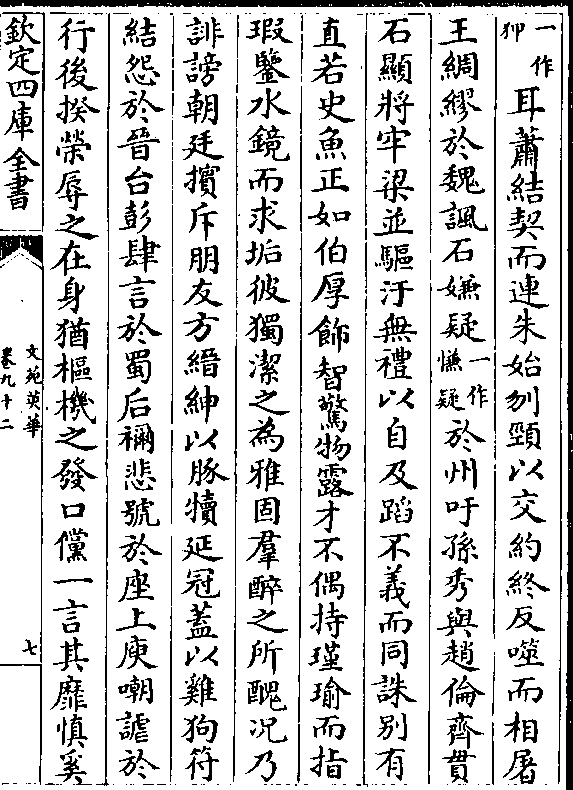 一作狎耳蕭結契而連朱始刎頸以交約終反噬而相屠
王綢繆於魏諷石嫌疑一作慊疑於州吁孫秀與趙倫齊貫
石顯將牢梁並驅汙無禮以自及蹈不義而同誅別有
直若史魚正如伯厚飾智驚物露才不偶持瑾瑜而指
瑕鑒水鏡而求垢彼獨潔之為雅固羣醉之所醜况乃
誹謗朝廷擯斥朋友方縉紳以豚犢延冠蓋以雞狗符
結怨於晉台彭肆言於蜀后禰悲號於座上庾嘲謔於
行後揆榮辱之在身猶樞機之發口儻一言其靡慎奚
欽定四庫全書
文苑英華
卷九十二
七